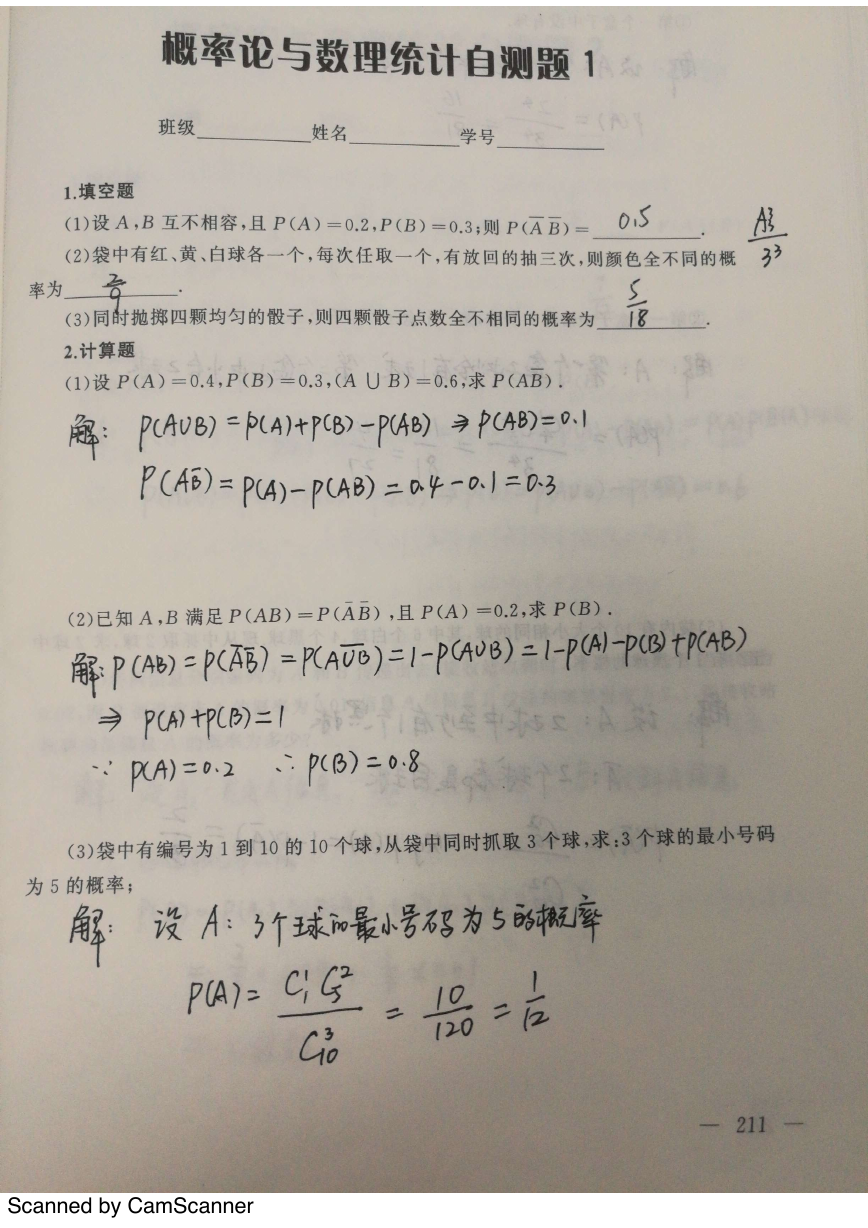 概率论与数理统计自测题 1
班级 姓名 学号
1.填空题
(1)设 A,B 互不相容,且 P(A)=0.2,P(B)=0.3;则 P(A̅ B̅)= 0.5 . A₃³/3³
(2)袋中有红、黄、白球各一个,每次任取一个,有放回的抽三次,则颜色全不同的概
率为 2/9 .
(3)同时抛掷四颗均匀的骰子,则四颗骰子点数全不相同的概率为 5/18 .
2.计算题
(1)设 P(A)=0.4,P(B)=0.3,(A ∪ B)=0.6,求 P(AB̅).
解: P(A∪B)=P(A)+P(B)-P(AB) ⇒ P(AB)=0.1
P(AB̅)=P(A)-P(AB)=0.4-0.1=0.3
(2)已知 A,B 满足 P(AB)=P(A̅ B̅),且 P(A)=0.2,求 P(B).
解: P(AB)=P(A̅B̅)=P(A̅∪̅B̅)=1-P(A∪B)=1-P(A)-P(B)+P(AB)
⇒ P(A)+P(B)=1
∵ P(A)=0.2 ∴ P(B)=0.8
(3)袋中有编号为 1 到 10 的 10 个球,从袋中同时抓取 3 个球,求:3 个球的最小号码
为 5 的概率;
解: 设 A: 3个球的最小号码为5的概率
P(A)= C₁¹ C₅²/C₁₀³ = 10/120 = 1/12
— 211 —
Scanned by CamScanner